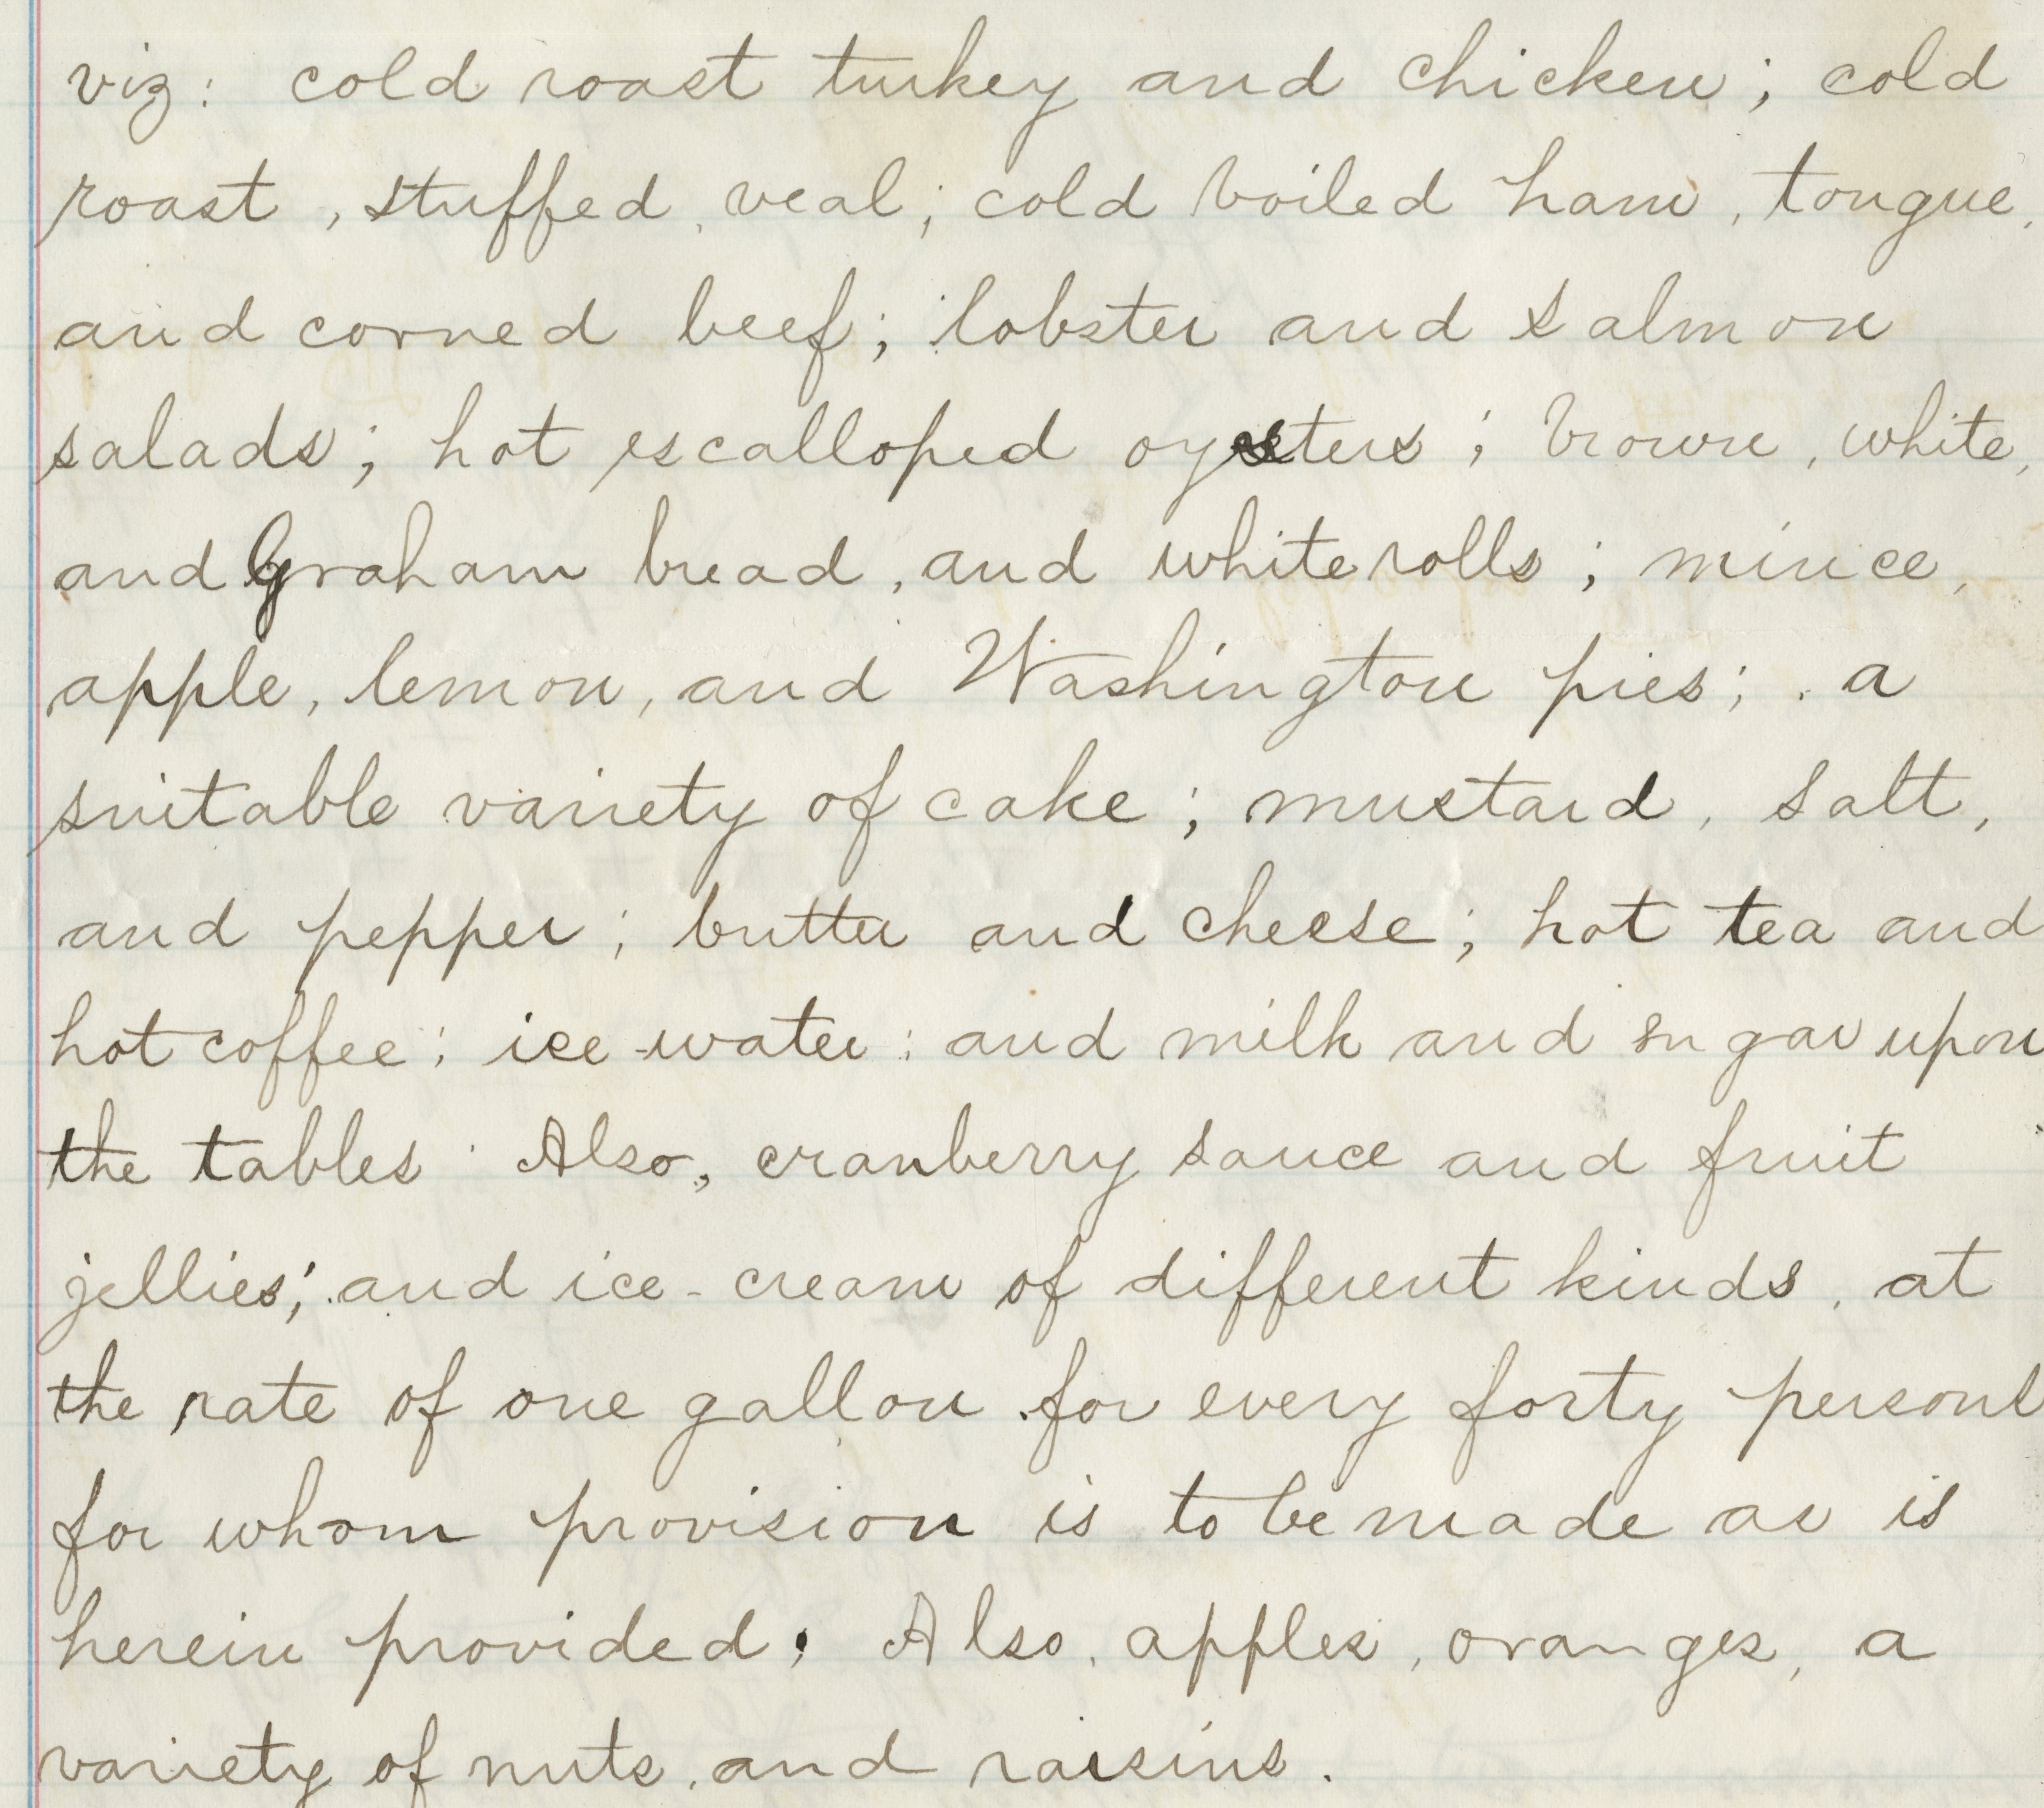 viz: cold roast turkey and chicken; cold
roast, stuffed, veal; cold boiled ham, tongue,
and corned beef; lobster and salmon
salads; hot escalloped oysters; brown, white,
and Graham bread, and white rolls; mince,
apple, lemon, and Washington pies; a
suitable variety of cake; mustard, salt,
and pepper; butter and cheese; hot tea and
hot coffee; ice-water; and milk and sugar upon
the tables. Also, cranberry sauce and fruit
jellies; and ice-cream of different kinds, at
the rate of one gallon for every forty persons
for whom provision is to be made as is
herein provided; Also, apples, oranges, a
variety of nuts, and raisins.